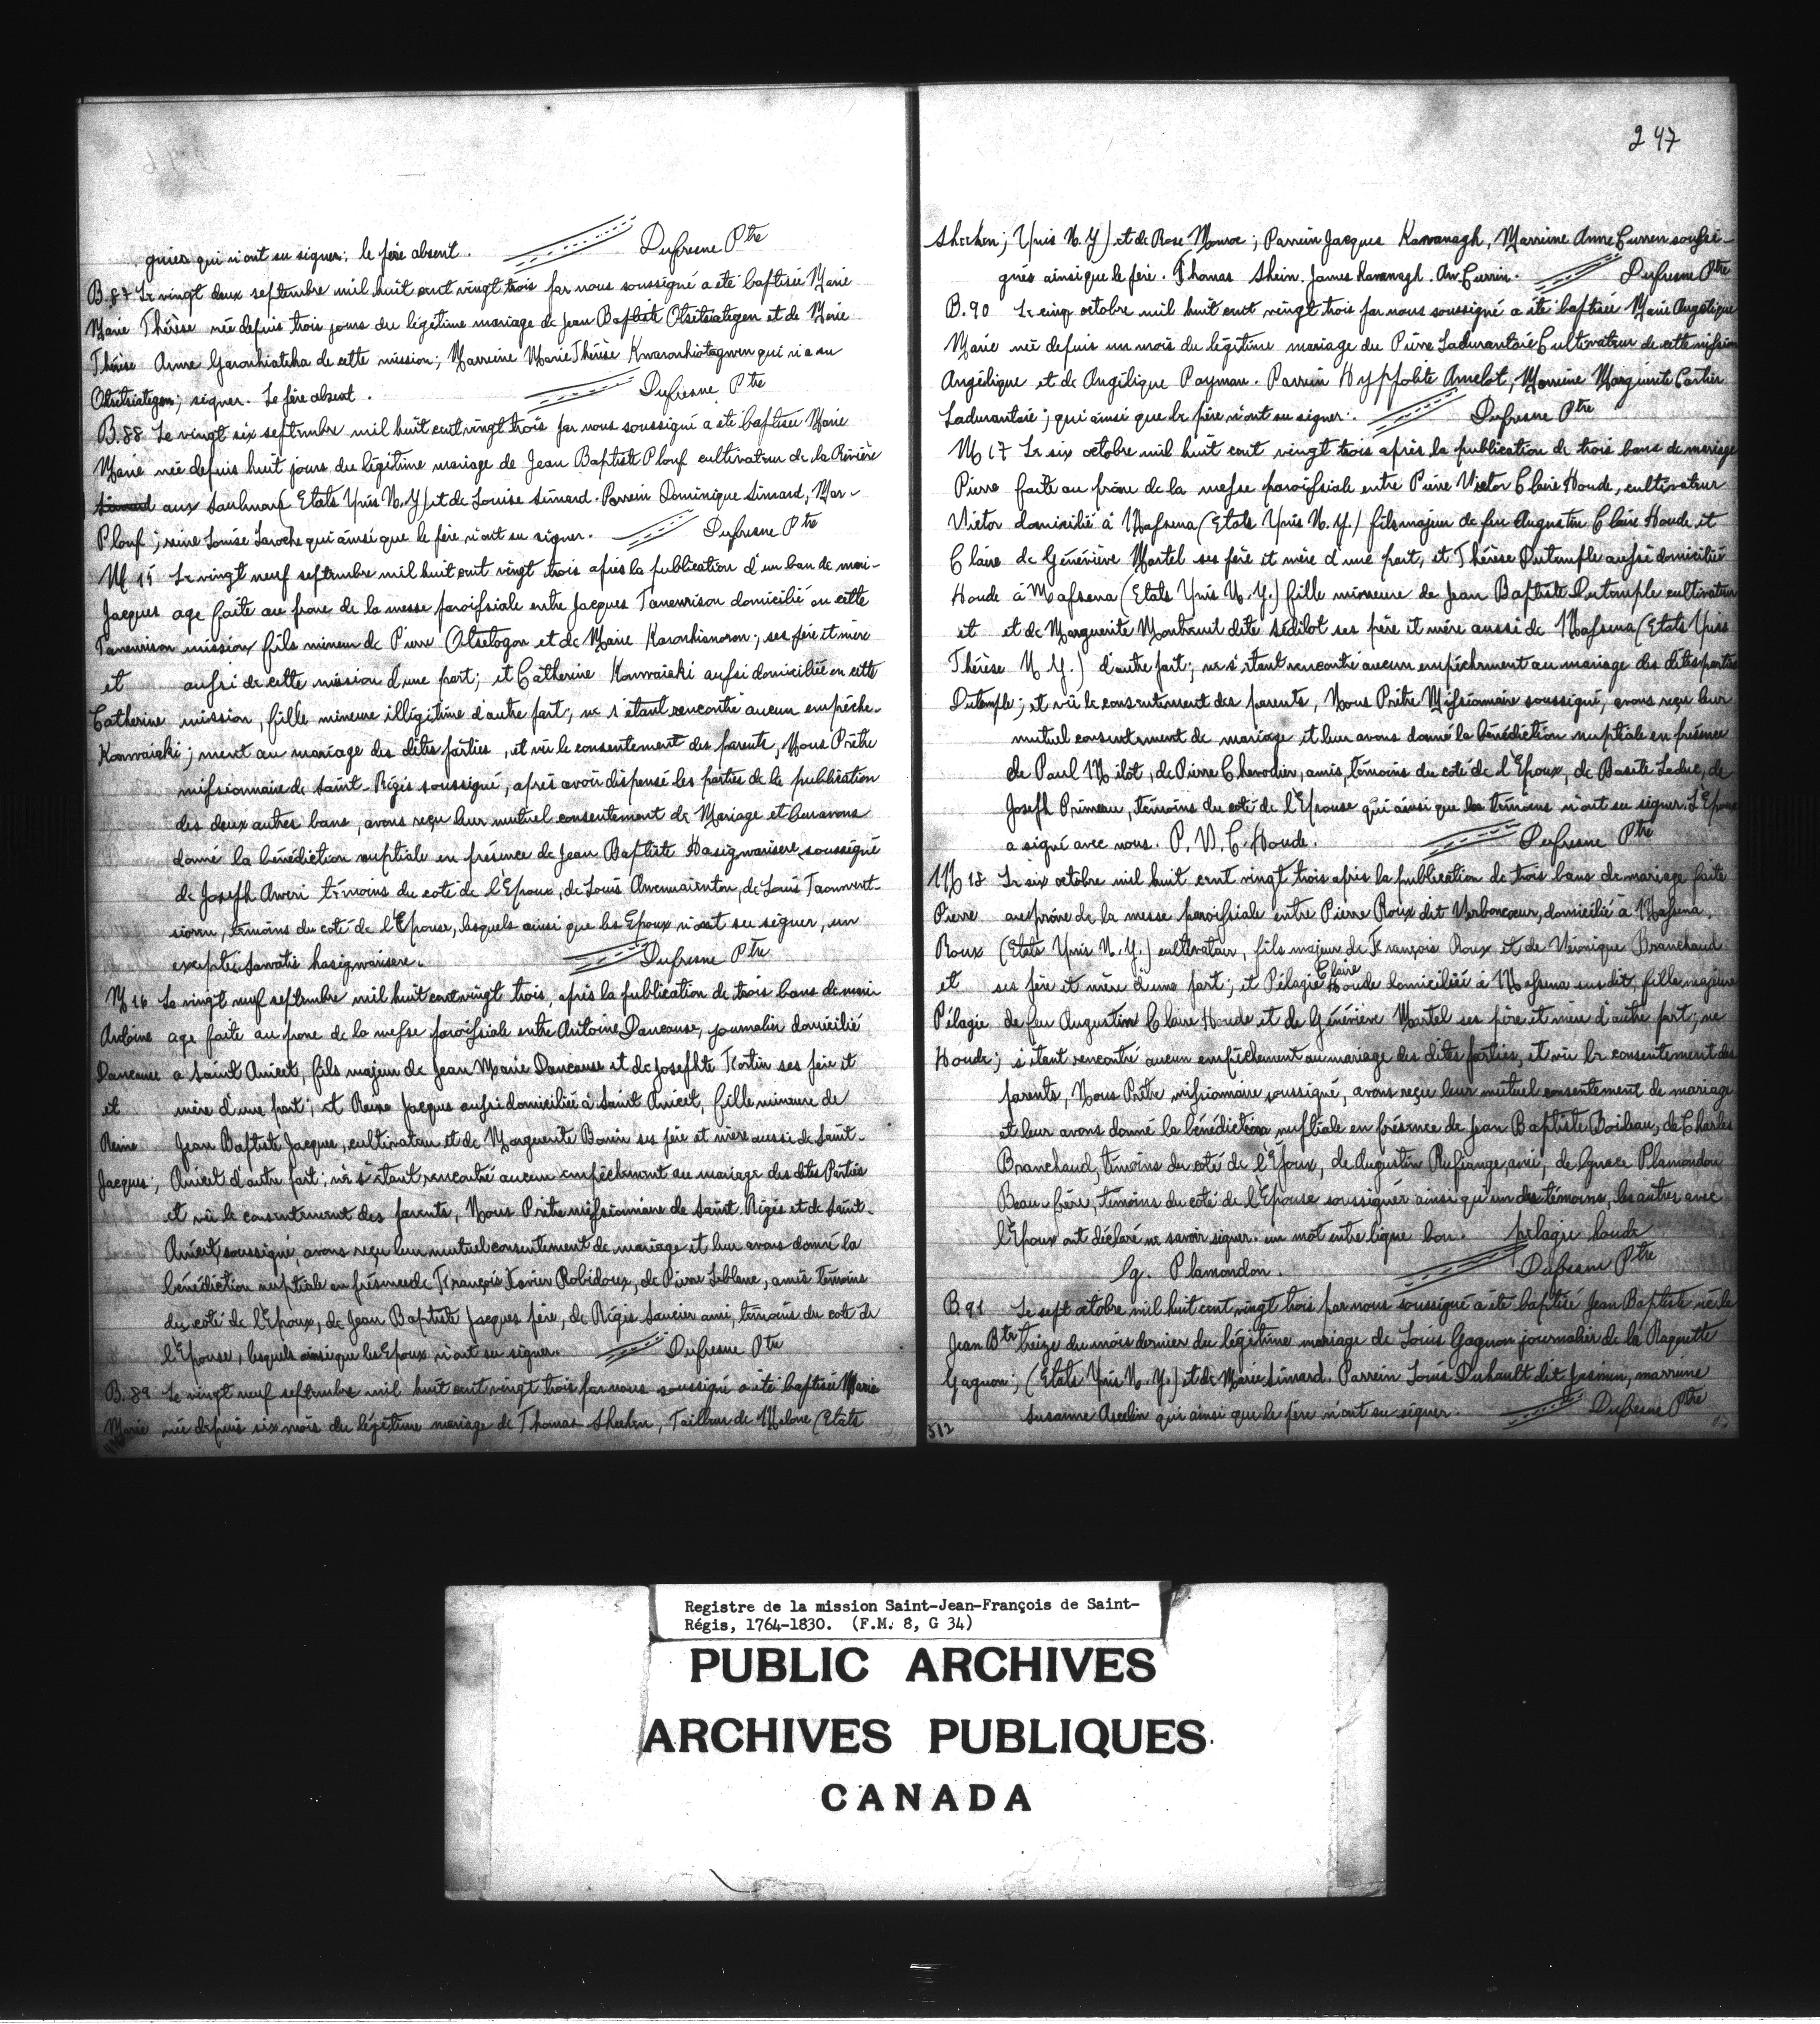 gnies qui n'ont su signer; le père absent. Dufresne Ptre
B.87 Le vingt deux septembre mil huit cent vingt trois par nous soussigné a été baptisée Marie
Marie Thérèse née depuis trois jours du légitime mariage de Jean Baptiste Otsitsiategen et de Marie
Thérèse Anne Garonhiatsha de cette mission; Marreine Marie Thérèse Kwaronhiotagwen qui n'a su
Otsitsiategen; signer. Le père absent. Dufresne Ptre
B.88 Le vingt six septembre mil huit cent vingt trois par nous soussigné a été baptisée Marie
Marie née depuis huit jours du légitime mariage de Jean Baptiste Plouf cultivateur de la Rivière
Simard aux Saulmons (Etats Unis N.Y) et de Louise Simard. Parrein Dominique Simard, Mar-
Plouf; reine Louise Laroche qui ainsi que le père n'ont su signer. Dufresne Ptre
M 15 Le vingt neuf septembre mil huit cent vingt trois après la publication d'un ban de mari-
Jacques age faite au prone de la messe paroifsiale entre Jacques Tanenrison domicilié en cette
Tanenrison mission fils mineur de Pierre Otsetogon et de Marie Karonhianoron; ses père et mère
et aufsi de cette mission d'une part; et Catherine Konwaiaki aufsi domiciliée en cette
Catherine mission, fille mineure illégitime d'autre part; ne s'étant rencontré aucun empêche-
Konwaiaki; ment au mariage des dites parties, et vû le consentement des parents, Nous Prêtre
mifsionnaire de Saint-Régis soussigné, après avoir dispensé les parties de la publication
des deux autres bans, avons reçu leur mutuel consentement de Mariage et leur avons
donné la bénédiction nuptiale en présence de Jean Baptiste Hasigwarisere soussigné
de Joseph Aweri témoins du coté de l'Epoux, de Louis Awennaienton, de Louis Taonwent-
siowu, témoins du coté de l'Epouse, lesquels ainsi que les Epoux n'ont su signer, un
excepté. Sawatis hasigwarisere. Dufresne Ptre
M 16 Le vingt neuf septembre mil huit cent vingt trois, après la publication de trois bans de mari-
Antoine age faite au prone de la mefse paroifsiale entre Antoine Dancause, journalier domicilié
Dancause a Saint Anicet, fils majeur de Jean Marie Dancause et de Josephte Fortin ses père et
et mère d'une part; et Reine Jacques aufsi domiciliée à Saint Anicet, fille mineure de
Reine Jean Baptiste Jacques, cultivateur et de Marguerite Bonin ses père et mère aussi de Saint-
Jacques; Anicet d'autre part; ne s'étant rencontré aucun empêchement au mariage des dites Parties
et vû le consentement des parents, Nous Prêtre mifsionnaire de Saint Régis et de Saint-
Anicet soussigné, avons reçu leur mutuel consentement de mariage et leur avons donné la
bénédiction nuptiale en présence de François Xavier Robidoux, de Pierre Leblanc, amis témoins
du coté de l'Epoux, de Jean Baptiste Jacques père, de Régis Saucier ami, témoins du coté de
l'Epouse, lesquels ainsi que les Epoux n'ont su signer. Dufresne Ptre
B.89 Le vingt neuf septembre mil huit cent vingt trois par nous soussigné a été baptisée Marie
Marie née depuis six mois du légitime mariage de Thomas Sheehen, Tailleur de Malone (Etats
247
Sheehen; Unis N.Y) et de Rose Monroe; Parrein Jacques Kavanagh, Marreine Anne Curren soufsi-
gnés ainsi que le père. Thomas Shein. James Kavanagh. An Currin. Dufresne Ptre
B.90 Le cinq octobre mil huit cent vingt trois par nous soussigné a été baptisée Marie Angélique
Marie née depuis un mois du légitime mariage du Pierre Ladurantaie Cultivateur de cette mifsion
Angélique et de Angélique Payman. Parrein Hyppolite Amelot, Marreine Marguerite Cartier
Ladurantaie; qui ainsi que le père n'ont su signer. Dufresne Ptre
M 17 Le six octobre mil huit cent vingt trois après la publication de trois bans de mariage
Pierre faite au prône de la mefse paroifsiale entre Pierre Victor Claire Houde, cultivateur
Victor domicilié à Mafsena (Etats Unis N.Y.) fils majeur de feu Augustin Claire Houde et
Claire de Généviève Martel ses père et mère d'une part, et Thérèse Dutemple aufsi domiciliée
Houde à Mafsena (Etats Unis N.Y.) fille mineure de Jean Baptiste Dutemple cultivateur
et et de Marguerite Montreuil dite Sédilot ses père et mère aussi de Mafsena (Etats Unis
Thérèse N.Y.) d'autre part; ne s'étant rencontré aucun empêchement au mariage des dites parties
Dutemple; et vû le consentement des parents, Nous Prêtre Mifsionnaire soussigné, avons reçu leur
mutuel consentement de mariage et leur avons donné la bénédiction nuptiale en présence
de Paul Milot, de Pierre Chevodier, amis, témoins du coté de l'Epoux, de Basile Leduc, de
Joseph Primeau, témoins du coté de l'Epouse qui ainsi que les témoins n'ont su signer. L'Epoux
a signé avec nous. P. V. C. Houde. Dufresne Ptre
M 18 Le six octobre mil huit cent vingt trois après la publication de trois bans de mariage faite
Pierre au prône de la messe paroifsiale entre Pierre Roux dit Verboncœur, domicilié à Mafsena,
Roux (Etats Unis N.Y.) cultivateur, fils majeur de François Roux et de Véronique Branchaud
et ses père et mère d'une part; et Pélagie Claire Houde domiciliée à Mafsena susdit, fille majeure
Pélagie de feu Augustin Claire Houde et de Généviève Martel ses père et mère d'autre part; ne
Houde; s'étant rencontré aucun empêchement au mariage des dites parties, et vû le consentement des
parents, Nous Prêtre mifsionnaire soussigné, avons reçu leur mutuel consentement de mariage
et leur avons donné la bénédiction nuptiale en présence de Jean Baptiste Boileau, de Charles
Branchaud, témoins du coté de l'Epoux, de Augustin Rufiange ami, de Ignace Plamondon
Beau frère, témoins du coté de l'Epouse soussignée ainsi qu'un des témoins, les autres avec
l'Epoux ont déclaré ne savoir signer. un mot entre ligne bon. pelagie houde
Ig. Plamondon. Dufresne Ptre
B.91 Le sept octobre mil huit cent vingt trois par nous soussigné a été baptisé Jean Baptiste né le
Jean Bte treize du mois dernier du légitime mariage de Louis Gagnon journalier de la Raquette
Gagnon; (Etats Unis N.Y.) et de Marie Simard. Parrein Louis Duhault dit Jasmin, marreine
Susanne Asselin qui ainsi que le père n'ont su signer. Dufresne Ptre
512
Registre de la mission Saint-Jean-François de Saint-
Régis, 1764-1830. (F.M. 8, G 34)
PUBLIC ARCHIVES
ARCHIVES PUBLIQUES
CANADA